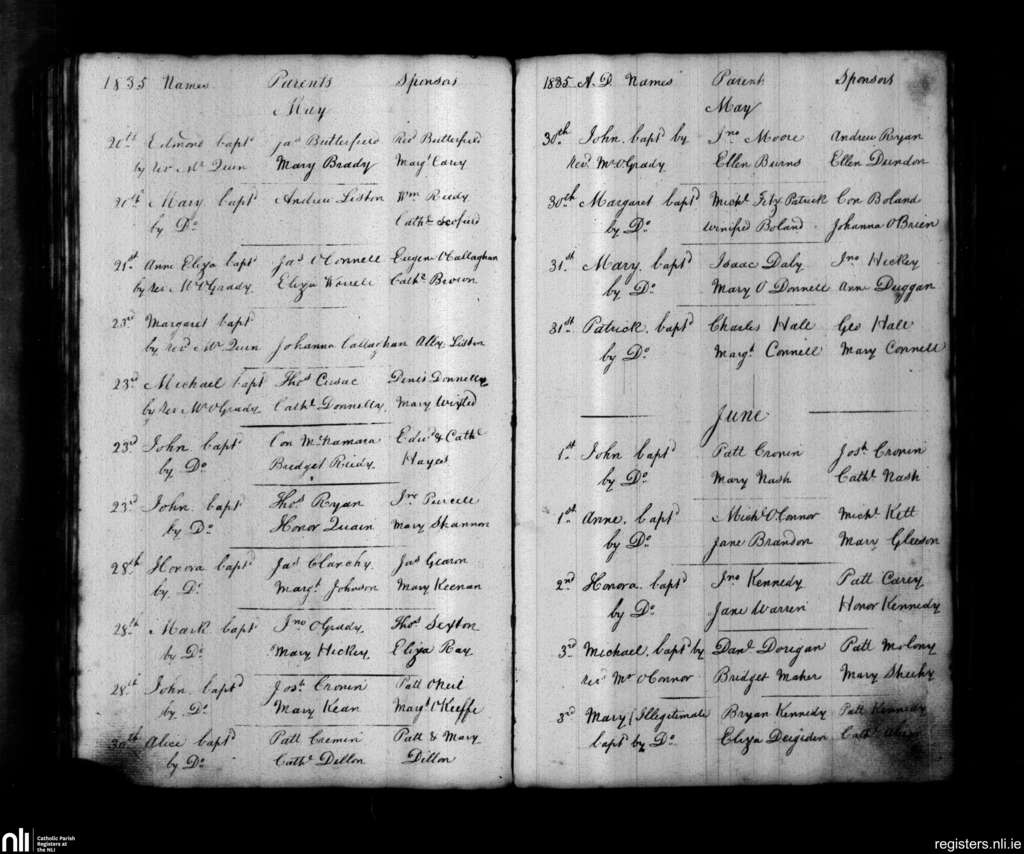 1835 Names Parents Sponsors
May
20th Edmond bapt^d Ja^s Butterfield Ric^d Butterfield
by Rev Mr Quin Mary Brady Marg^t Carey
20th Mary bapt^d Andrew Liston Wm Reidy
by Do. Cath^e Scofield
21st Anne Eliza bapt^d Ja^s O'Connell Eugene O'Callaghan
by Rev. Mr O'Grady Eliza Cath^e Brown
23rd Margaret bapt^d
by Rev^d Mr Quin Johanna Callaghan Alby Liston
23rd Michael bapt^d Tho^s Cusac Denis Donnelly
by Rev Mr O'Grady Cath^e Donnelly Mary Wixted
23rd John bapt^d Con McNamara Edw^d & Cath^e
by Do. Bridget Reidy Hayes
23rd John bapt^d Tho^s Ryan Jno Purcell
by Do. Honor Quain Mary Shannon
28th Honora bapt^d Ja^s Clarchy Ja^s Gearon
by Do. Marg^t Johnson Mary Keenan
28th Mark bapt^d Jno O'Grady Tho^s Sexton
by Do. Mary Hickey Eliza Ray
28th John bapt^d Jos^h Cronin Patt O'Neil
by Do. Mary Kean Marg^t O'Keeffe
30th Alice bapt^d Patt Cremin Patt & Mary
by Do. Cath^e Dillon Dillon
1835 A.D. Names Parents Sponsors
May
30th John bapt^d by Jno Moore Andrew Ryan
Rev^d Mr O'Grady Ellen Burns Ellen Dundon
30th Margaret bapt^d Mich^l Fitz Patrick Con Boland
by Do. Winifred Boland Johanna O'Brien
31st Mary bapt^d Isaac Daly Jno Hickey
by Do. Mary O Donnell Anne Duggan
31st Patrick bapt^d Charles Hall Geo Hall
by Do. Marg^t Connell Mary Connell
June
1st John bapt^d Patt Cronin Jos^h Cronin
by Do. Mary Nash Cath^e Nash
1st Anne bapt^d Mich^l O'Connor Mich^l Kett
by Do. Jane Brandon Mary Gleeson
2nd Honora bapt^d Jno Kennedy Patt Carey
by Do. Jane Warren Honor Kennedy
3rd Michael bapt^d by Dan^l Dorigan Patt Molony
Rev^d Mr O'Connor Bridget Maher Mary Sheehy
3rd Mary (Illegitimate Bryan Kennedy Patt Kennedy
bapt^d by Do. Eliza Deigidin Cath^e
nli Catholic Parish
Registers at
the NLI
registers.nli.ie